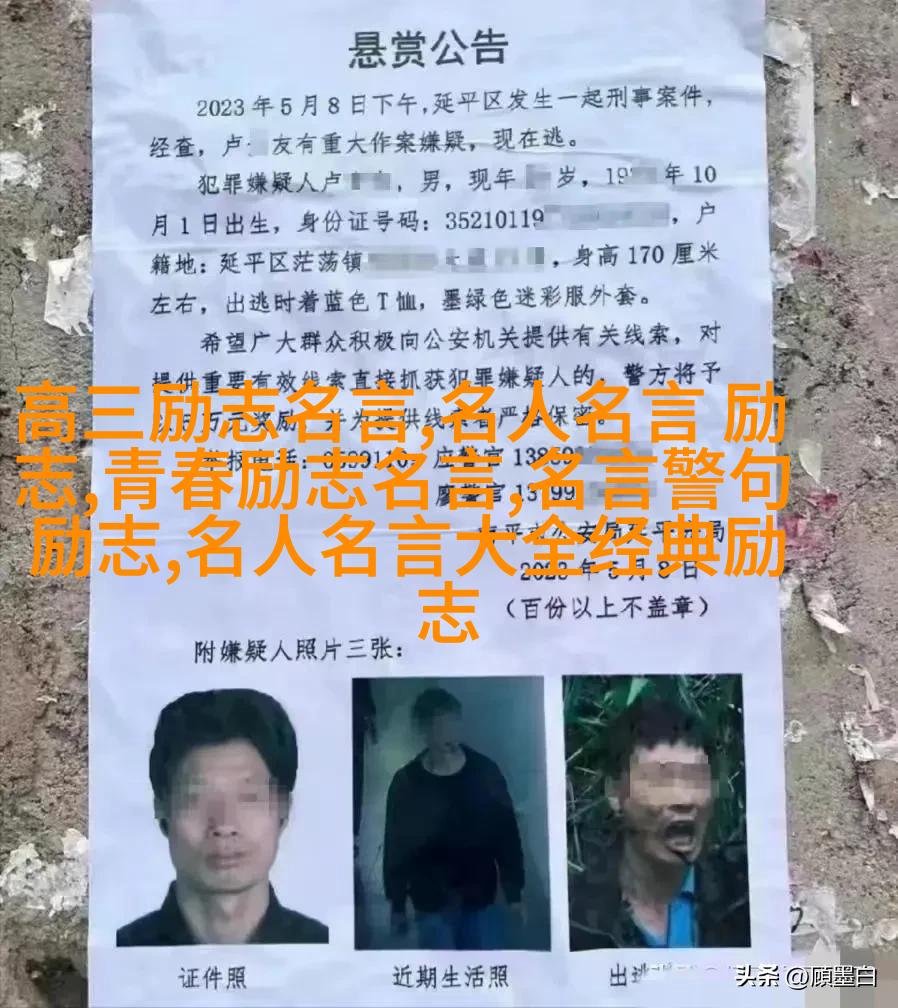 悬赏公告
2023年5月8日下午,延平区发生一起刑事案件,
经查,卢 友有重大作案嫌疑,现在逃。
犯罪嫌疑人卢 ,男,现年 岁,19 年10
月1日出生,身份证号码:35210119 ,户
籍地:延平区茫荡镇 ,身高170厘米
左右,出逃时着蓝色T恤,墨绿色迷彩服外套。
希望广大群众积极向公安机关提供有关线索,对
提供重要有效线索直接抓获犯罪嫌疑人的,警方将予
高三励志名言,名人名言 励
志,青春励志名言,名言警句
励志,名人名言大全经典励
志
万元奖励,并为提供线索者严格保密。
举报电话: 应警官
廖警官
2023年5月8日
(百份以上不盖章)
附嫌疑人照片三张:
证件照
近期生活照
出逃
头条 @顾墨白